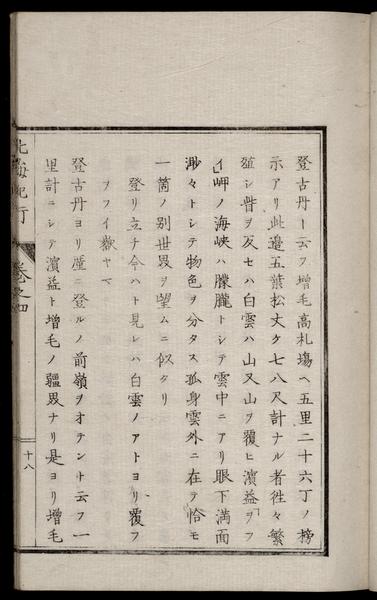 登古丹ト云フ増毛高札場ヘ五里二十六丁ノ榜
示アリ此邊五葉松丈ケ七八尺計ナル者徃々繁
殖シ首ヲ反セハ白雲ハ山又山ヲ覆ヒ濱益「ヲフ
イ」岬ノ海峽ハ朦朧トシテ雲中ニアリ眼下満面
渺々トシテ物色ヲ分タス孤身雲外ニ在テ恰モ
一箇ノ別世界ヲ望ムニ似タリ
登リ立チ今ハト見レハ白雲ノアトヨリ覆フ
ヲフイ嶽ヤマ
登古丹ヨリ屢ニ登ルノ前嶺ヲオテントト云フ一
里計ニシテ濱益ト増毛ノ疆界ナリ是ヨリ増毛
北海紀行
巻之四
十八